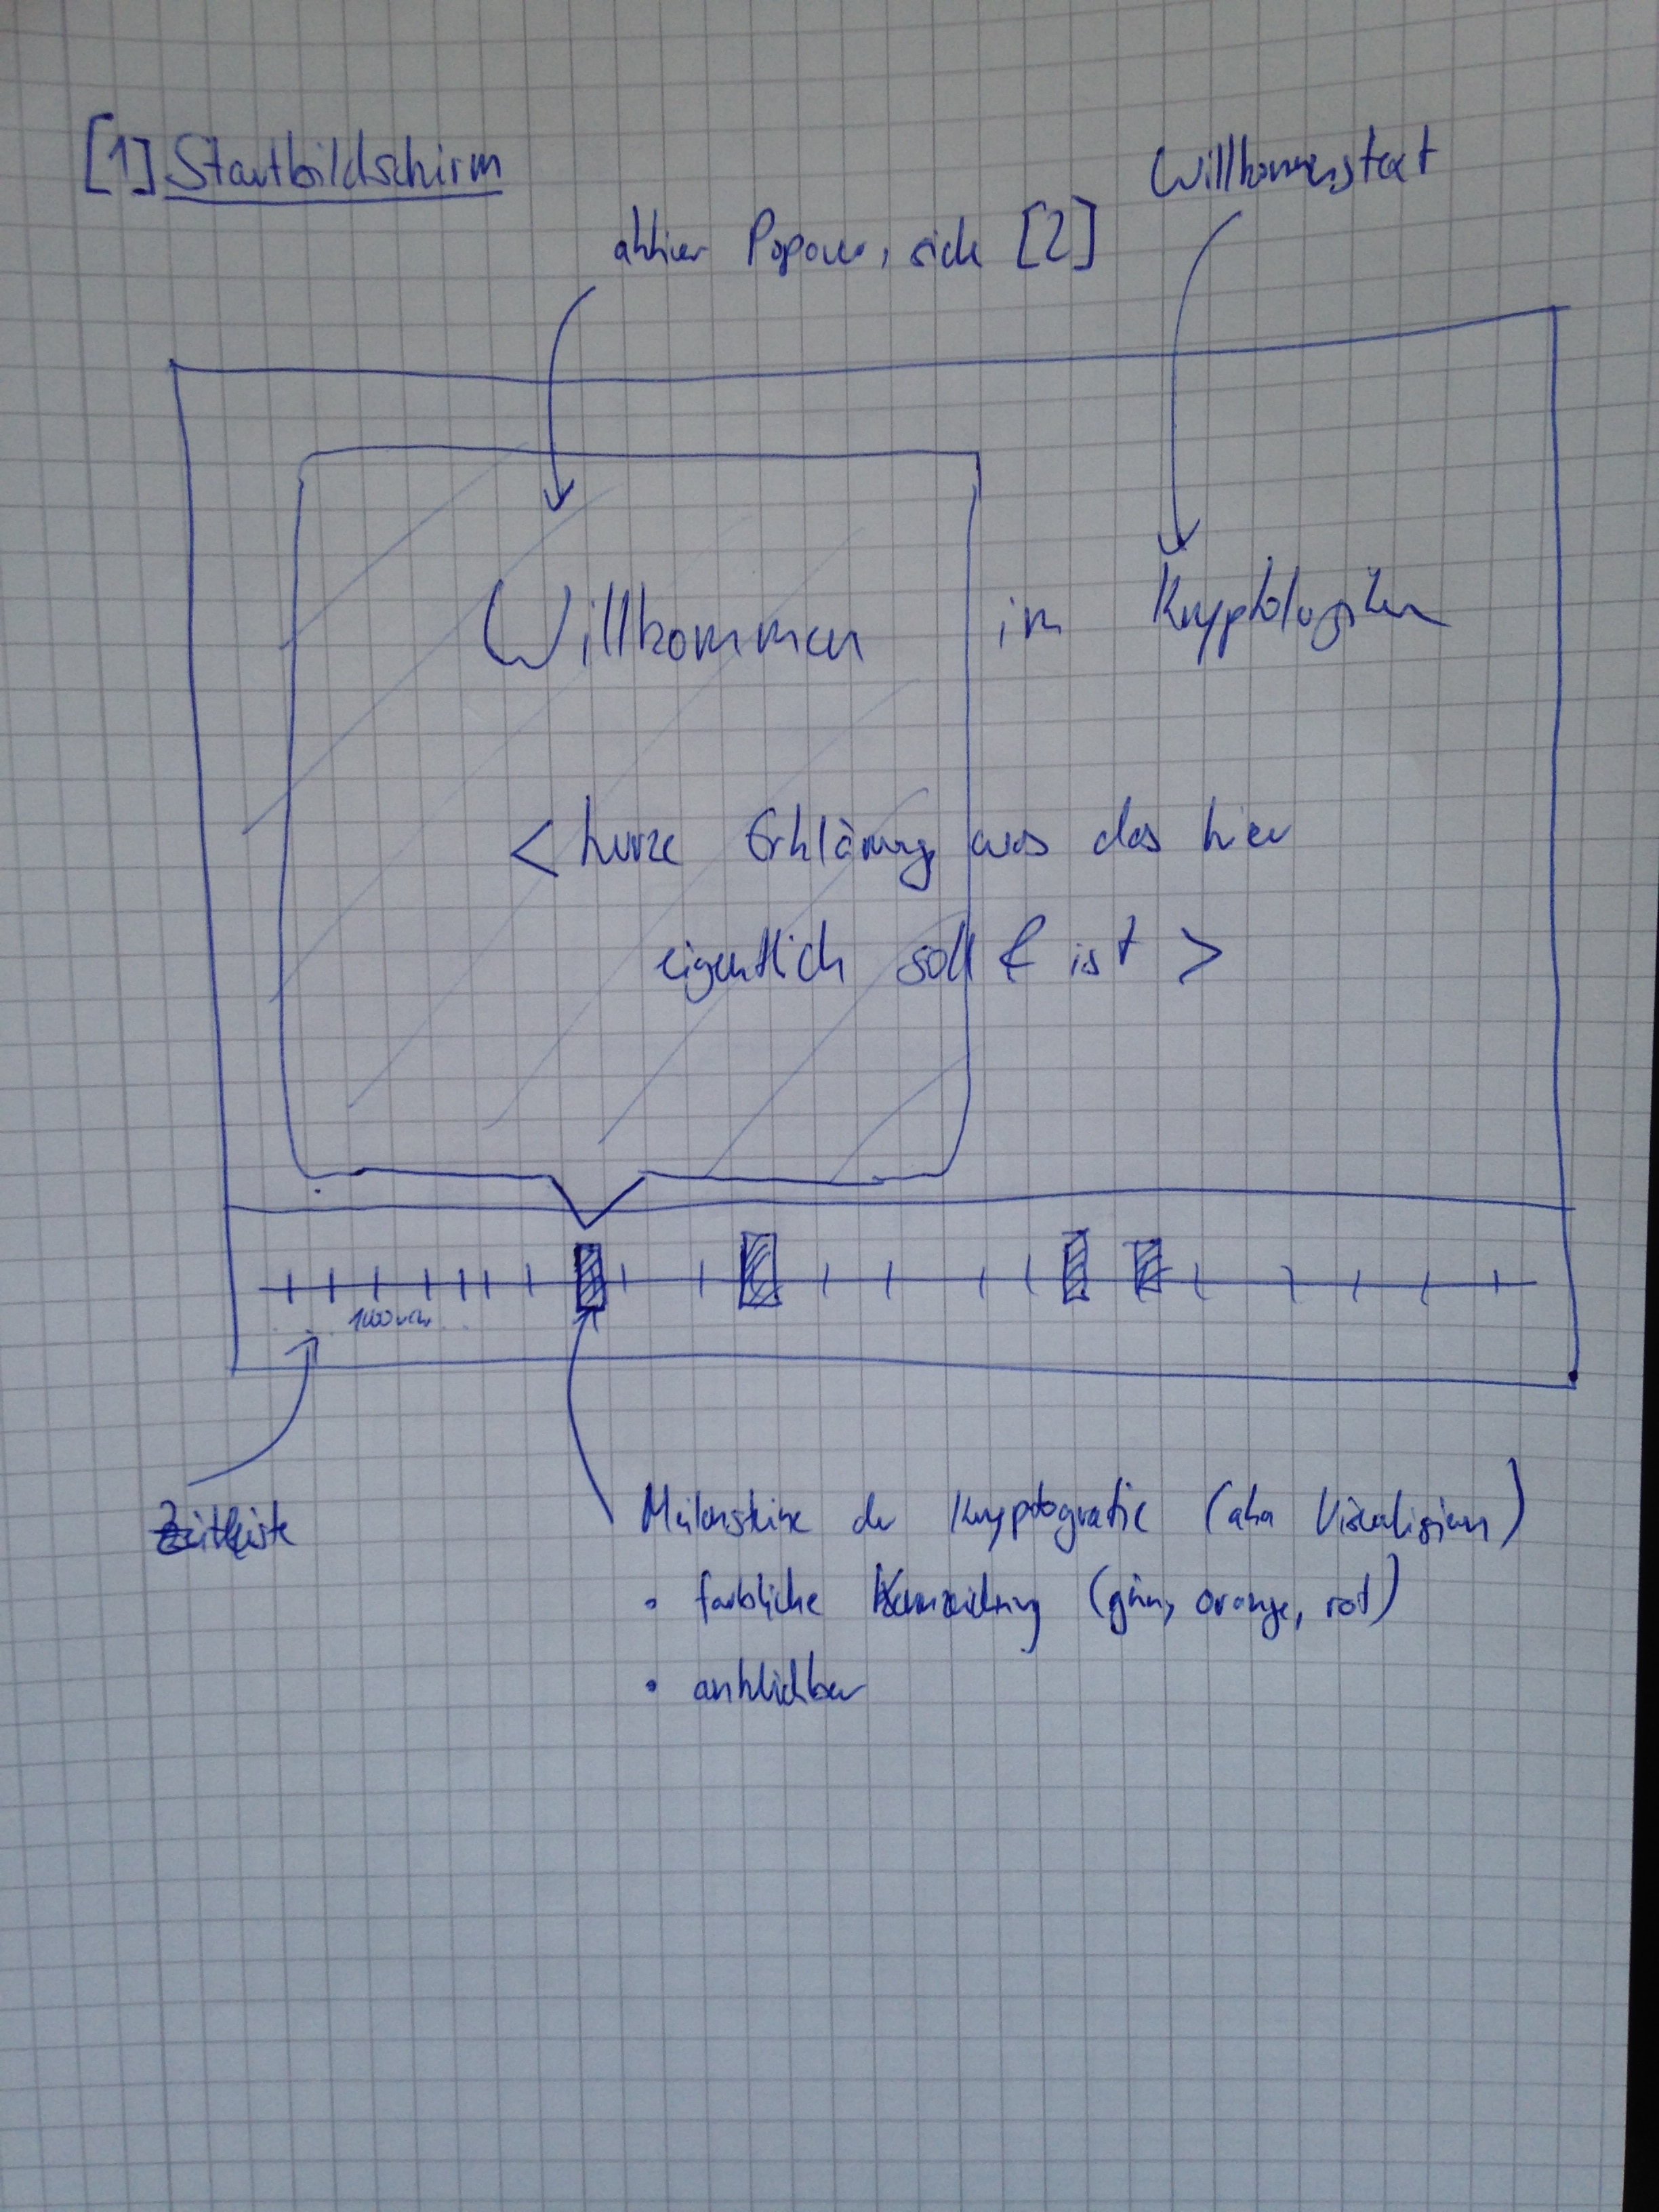 [1] Startbildschirm
Willkommenstext
aktiver Popover, siehe [2]
Willkommen im Kryptologikum
< kurze Erklärung was das hier
eigentlich soll & ist >
Zeitleiste
Meilensteine der Kryptografie (aka Visualisierung)
• farbliche Kennzeichnung (grün, orange, rot)
• anklickbar